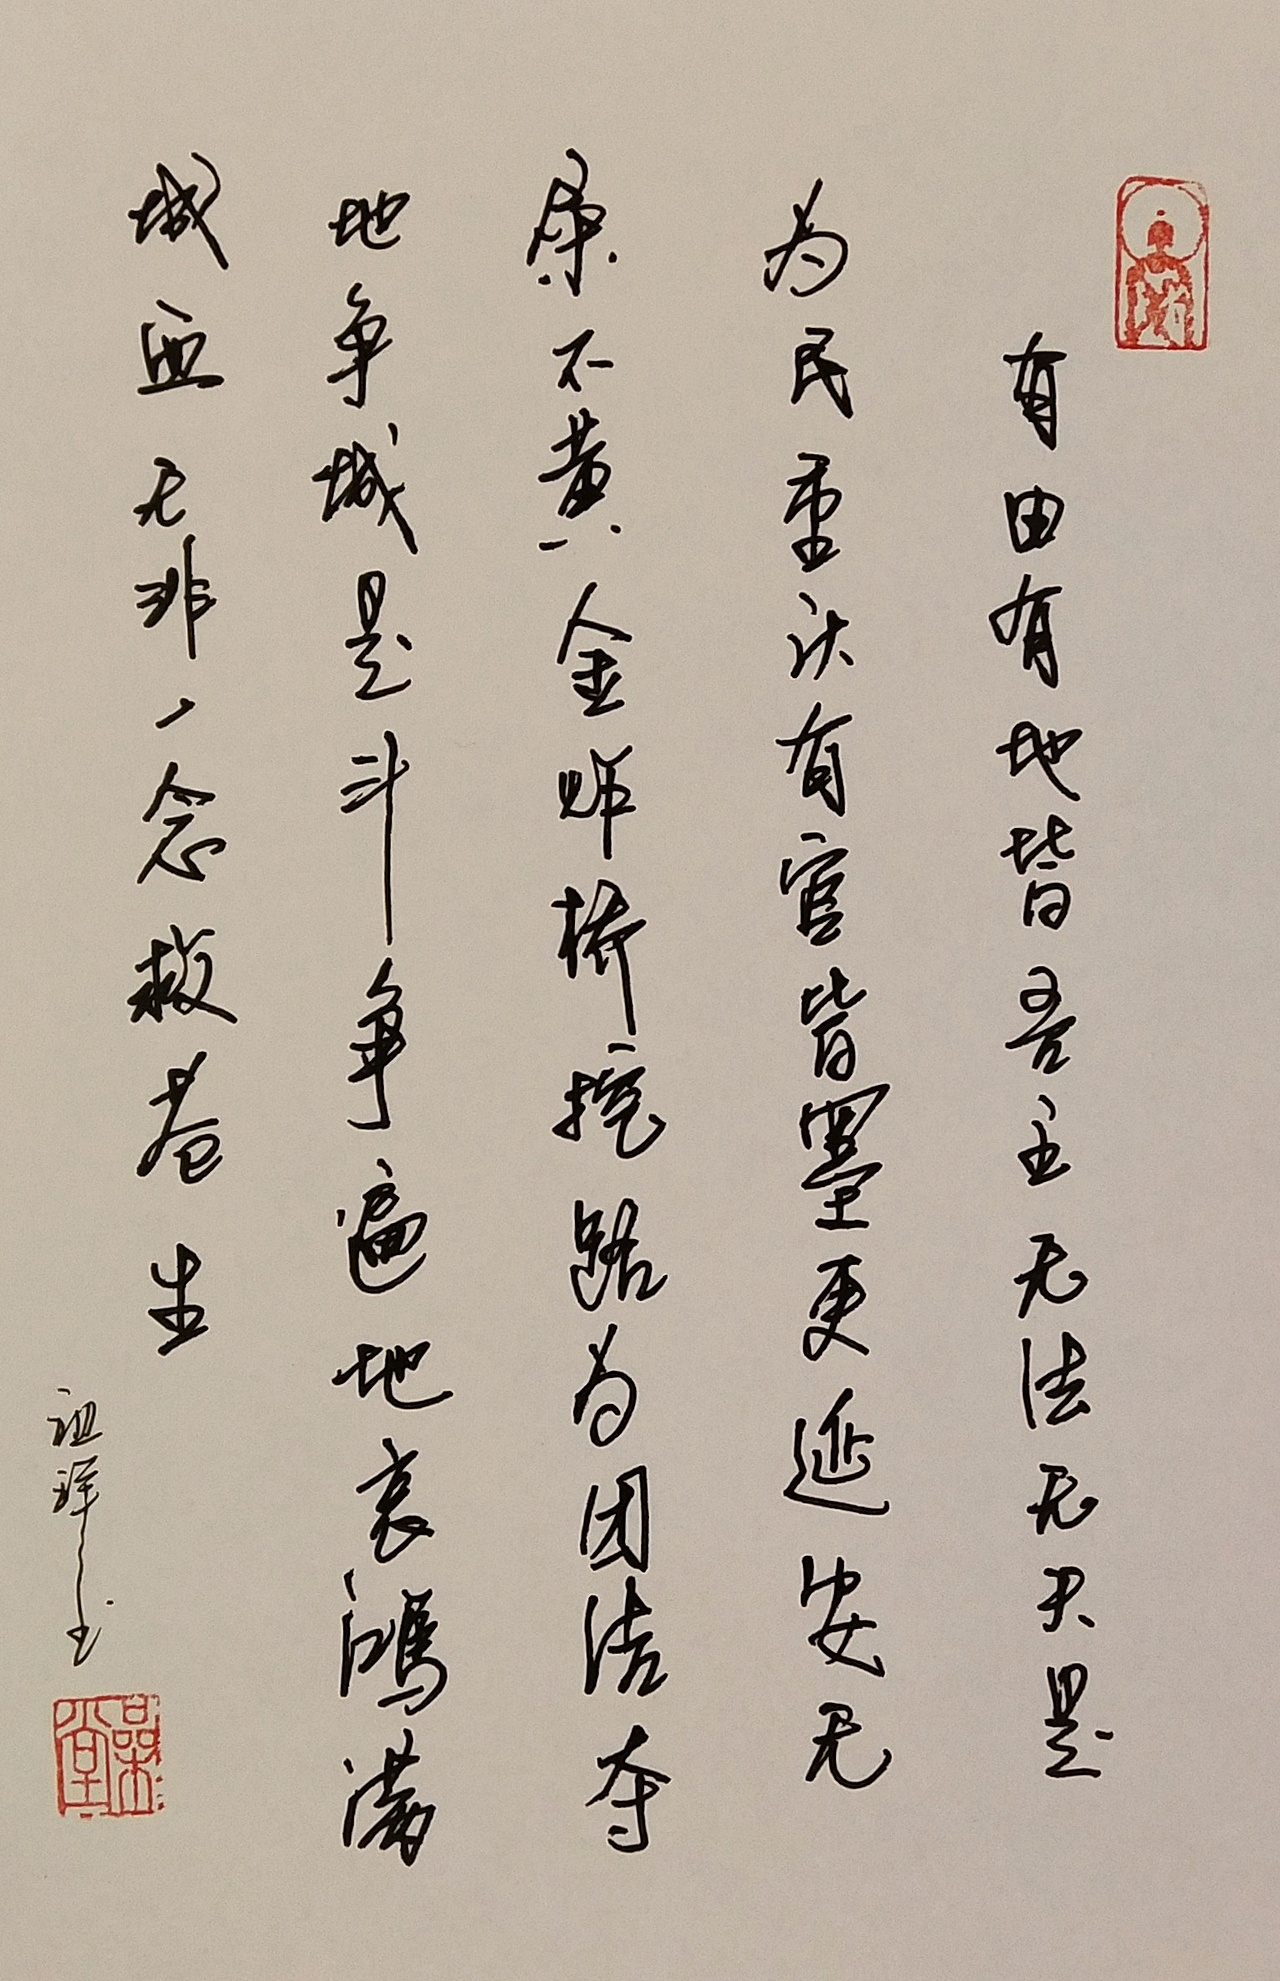 有由有地皆吾主无法无天是
为民重庆有官皆墨吏延安无
不黄金炸桥挖路为团结夺
地争城是斗争遍地哀鸿满
城血无非一念救苍生
祖祥书